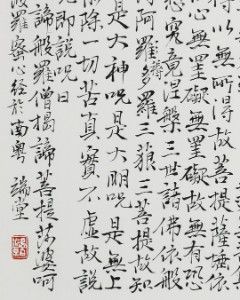 得以無所得故菩提薩埵依
心無罣礙無罣礙故無有恐
想究竟涅槃三世諸佛依般
阿耨多羅三藐三菩提故知
是大神咒是大明咒是無上
除一切苦真實不虛故說
即說咒曰
諦般羅僧揭諦菩提莎婆呵
羅蜜心經於南粵